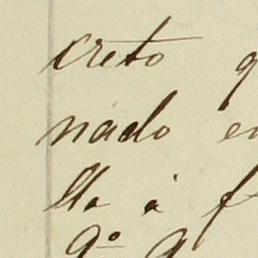 creto
nado
lla á
9º